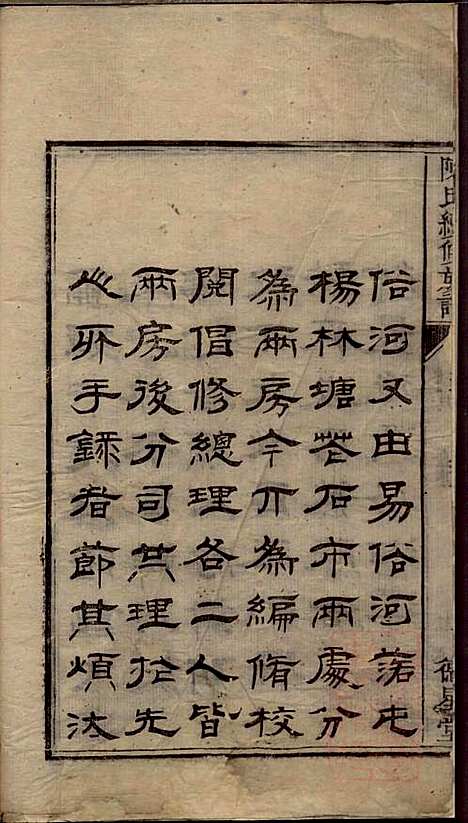 俗河又由易俗河落屯
楊林塘苍石市兩處分
為兩房今亦為編脩校
閱倡修總理各二人皆
兩房後分司其理於先
人所手錄者節其煩汰
陳氏續修族譜